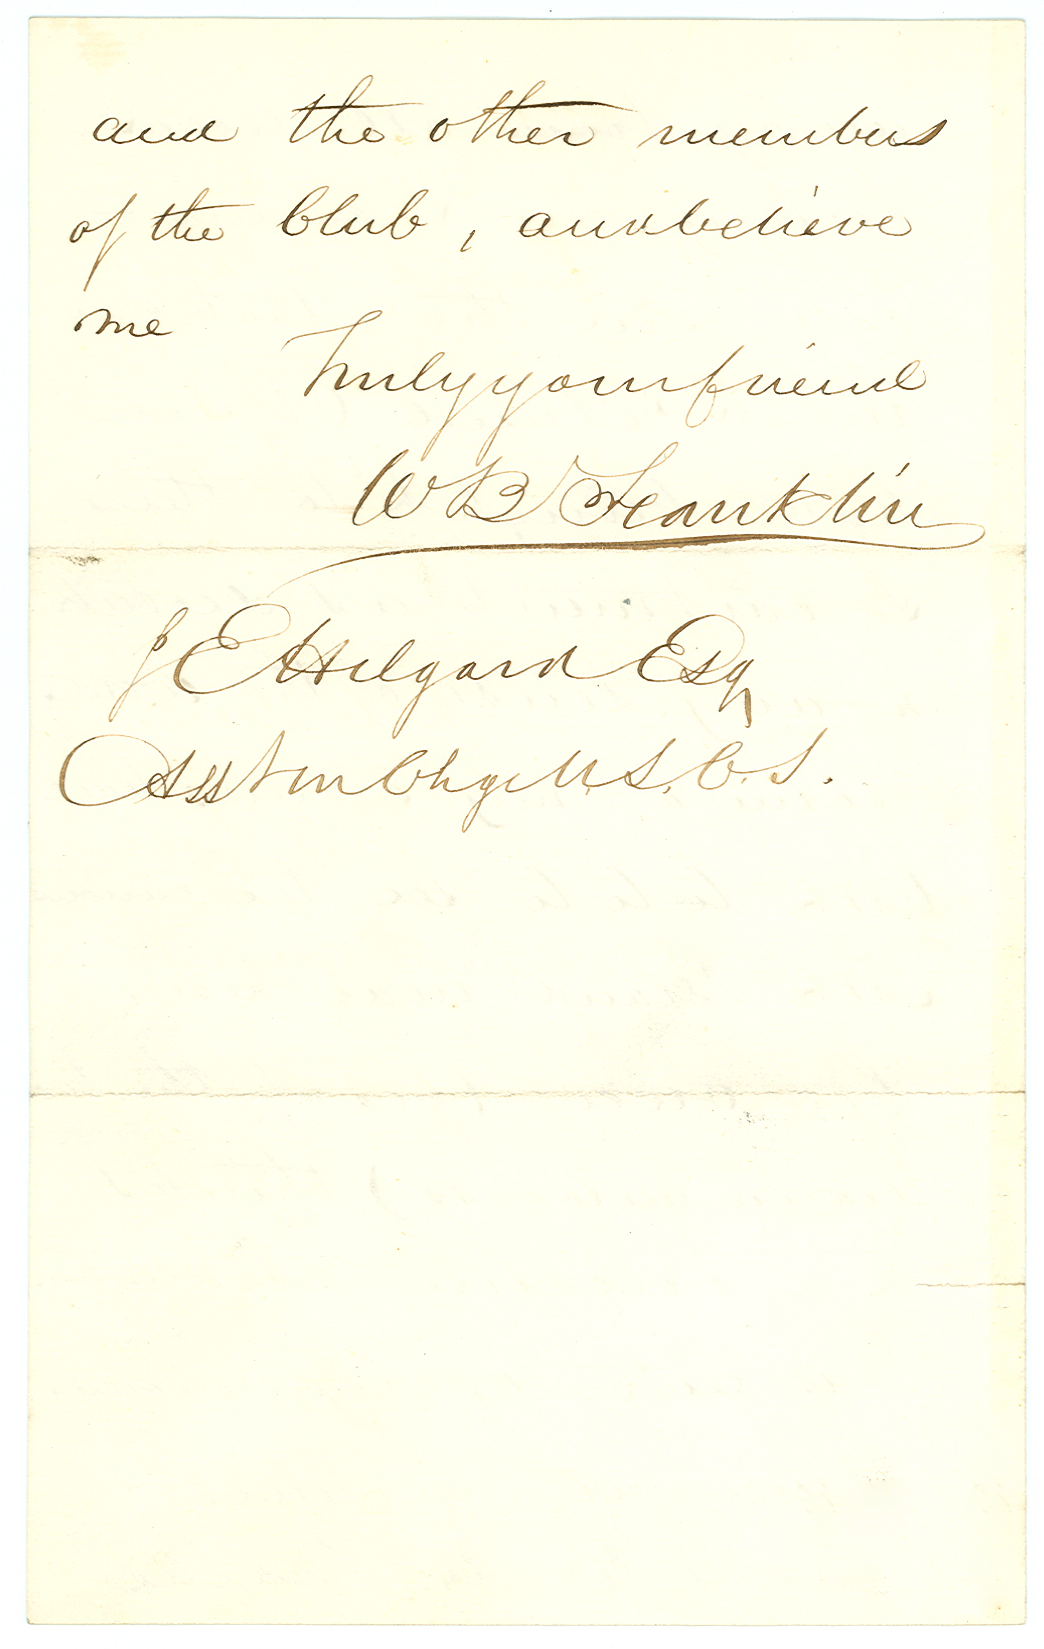 and the other members
of the Club, and believe
me
Truly your friend
W B Franklin
J E Hilgard Esq
Asst in Chge U.S.C.S.